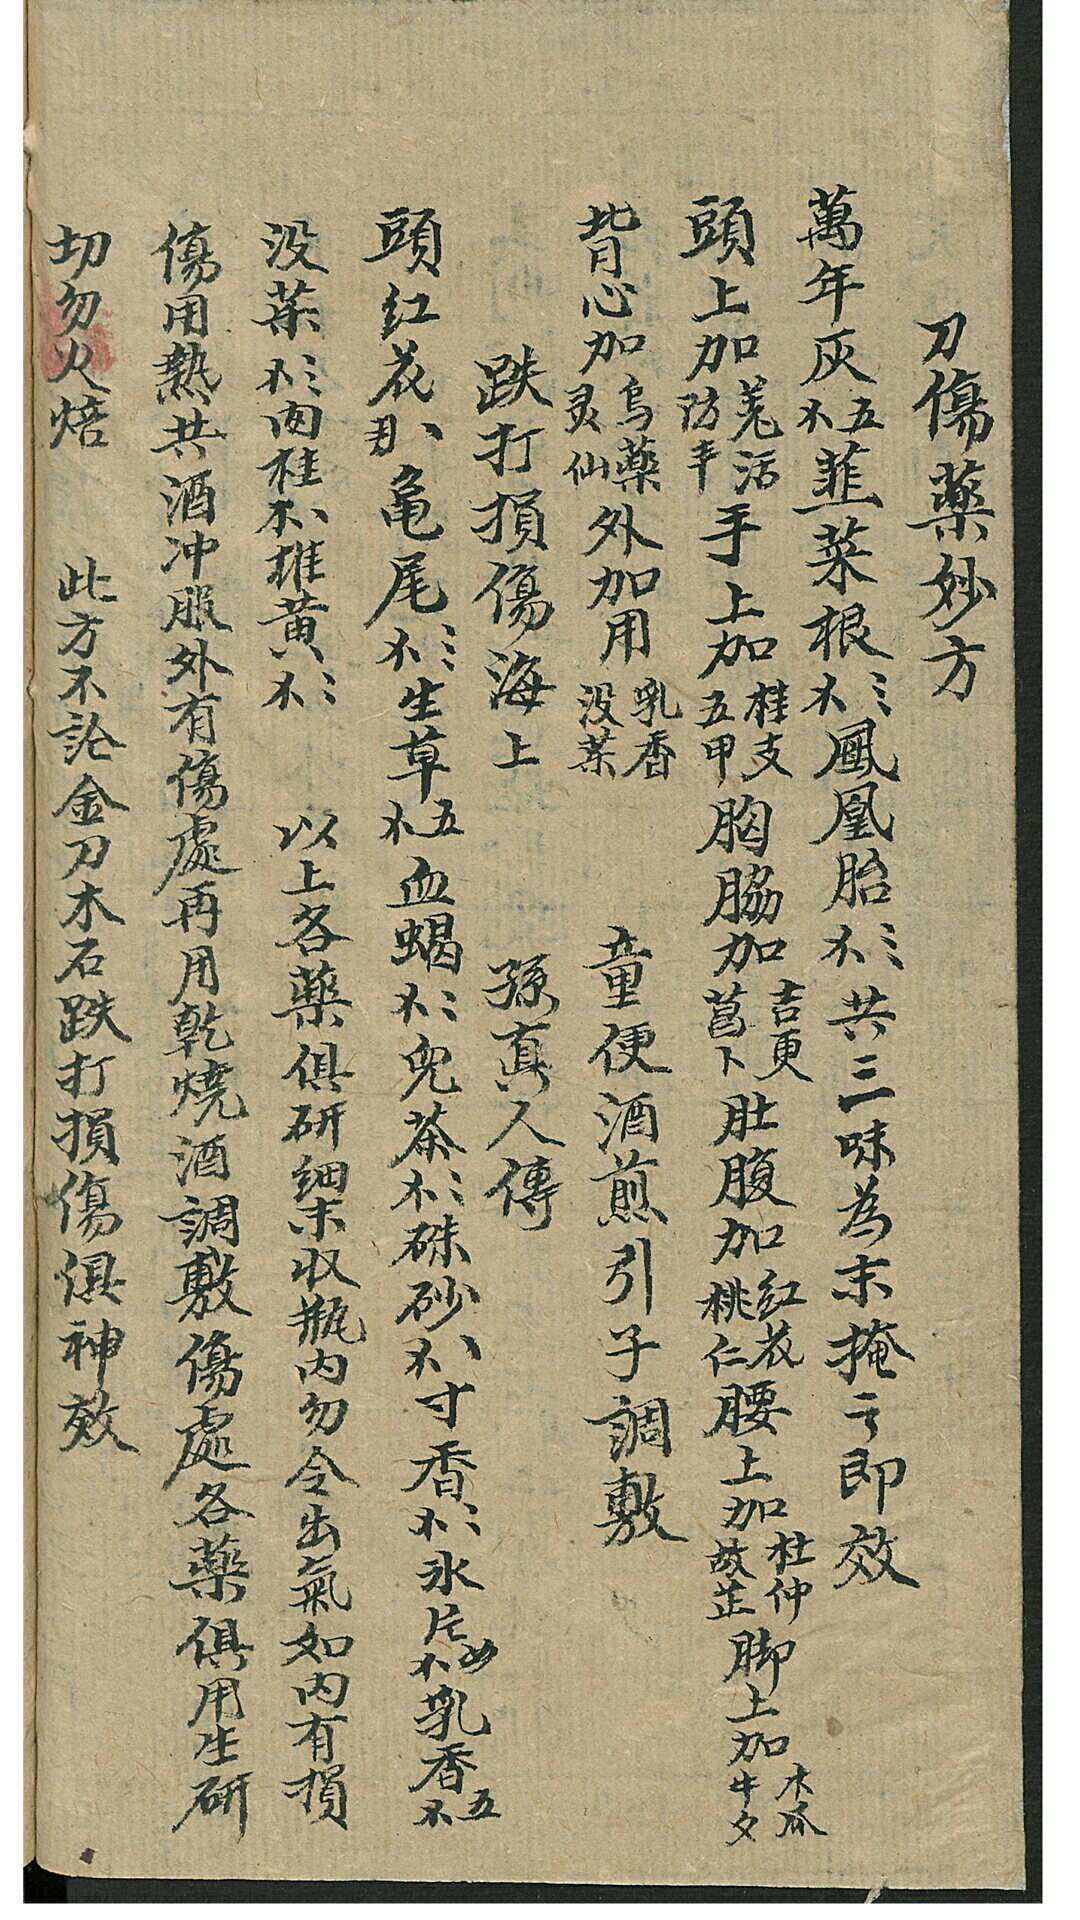 刀傷藥妙方
萬年灰五不韮菜根三不鳳凰胎三不共三味為末掩之即效
頭上加羗活防丰手上加桂支五甲胸脇加吉更菖卜肚腹加红花桃仁腰上加杜仲故芷脚上加木瓜牛夕
背心加烏藥灵仙外加用乳香没茱 童便酒煎引子調敷
跌打損傷海上 孫真人傳
頭红花龟尾三不生草五不血蝎二不兒茶二不硃砂八不寸香二不氷片不乳香五不
没茱三不肉桂八不推黄二不 以上各藥俱研細末収瓶内勿令出氣如内有損
傷用熱共酒冲服外有傷處再用乾燒酒調敷傷處各藥俱用生研
切勿火焙 此方不論金刀木石跌打損傷俱神效